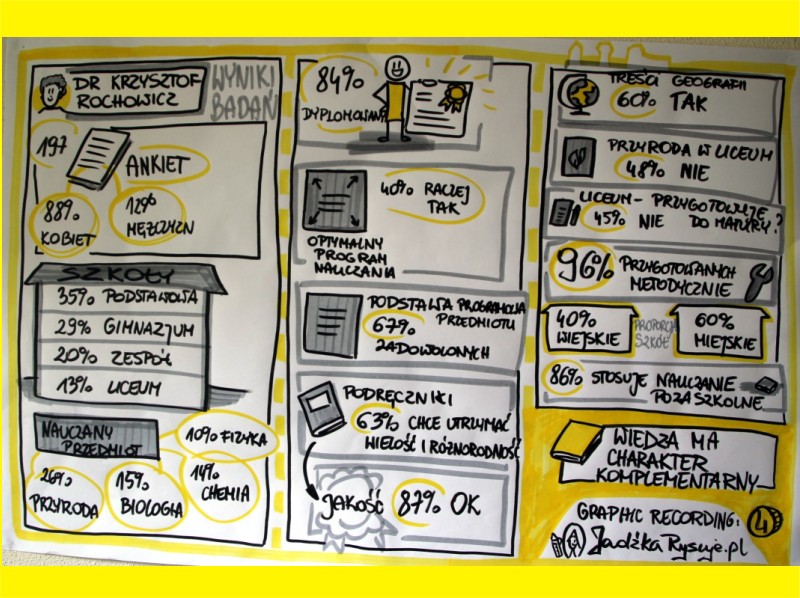 DR KRZYSZTOF
ROCHOWICZ
WYNIKI
BADAŃ
197
ANKIET
88%
KOBIET
12%
MĘŻCZYZN
SZKOŁY
35% PODSTAWOWA
29% GIMNAZJUM
20% ZESPÓŁ
13% LICEUM
NAUCZANY
PRZEDMIOT
10% FIZYKA
26%
PRZYRODA
15%
BIOLOGIA
14%
CHEMIA
84%
DYPLOMOWANY
40% RACZEJ
TAK
OPTYMALNY
PROGRAM
NAUCZANIA
PODSTAWA PROGRAMOWA
PRZEDMIOTU
67%
ZADOWOLONYCH
PODRĘCZNIKI
63% CHCE UTRZYMAĆ
WIELOŚĆ I RÓŻNORODNOŚĆ
JAKOŚĆ 87% OK
TREŚCI GEOGRAFII
60% TAK
PRZYRODA W LICEUM
48% NIE
LICEUM - PRZYGOTOWUJE
45% NIE DO MATURY?
96% PRZYGOTOWANYCH
METODYCZNIE
40%
WIEJSKIE
PROPORCJA
SZKÓŁ
60%
MIEJSKIE
86% STOSUJE NAUCZANIE
POZASZKOLNE
WIEDZA MA
CHARAKTER
KOMPLEMENTARNY
GRAPHIC RECORDING: 4
JadźkaRysuje.pl